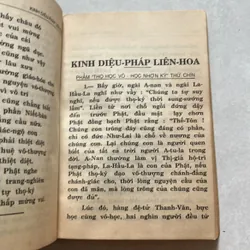 KINH DIỆU-PHÁP LIÊN-HOA
PHẨM "THỌ HỌC VÔ - HỌC NHƠN KÝ" THỨ CHÍN
1.— Bấy giờ, ngài A-nan và ngài La-
Hầu-La nghĩ như vầy: "Chúng ta tự suy
nghĩ, nếu được thọ-ký thời sung-sướng
lắm". Liền từ chỗ ngồi đứng dậy đến trước
Phật đồng bạch Phật rằng: "Thế-Tôn!
Chúng con trong đây cũng đáng có phần,
chỉ có đức Như-Lai là chỗ về nương của
chúng con. Lại chúng con là người quen
biết của tất cả trời, người, A-tu-la trong
đời. A-Nan thường làm vị Thị-giả hộ-trì
tạng-pháp, La-Hầu-La là con của Phật, nếu
Phật thọ-ký đạo vô-thượng chánh-đẳng
chánh-giác cho, thời lòng nguyện cầu của
con đã mãn, mà lòng trông của chúng cũng
được đủ".
Lúc đó, hàng đệ-tử Thanh-Văn, bực
học cùng vô-học, hai nghìn người đều từ